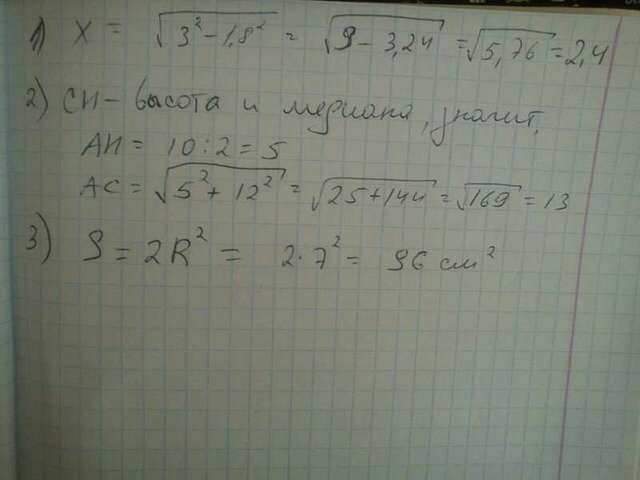 1) X = √3²-1,8² = √9-3,24 = √5,76 = 2,4
2) CH - высота и медиана, значит,
AH = 10:2=5
AC = √5²+12² = √25+144 = √169 = 13
3) S = 2R² = 2·7² = 96 см²